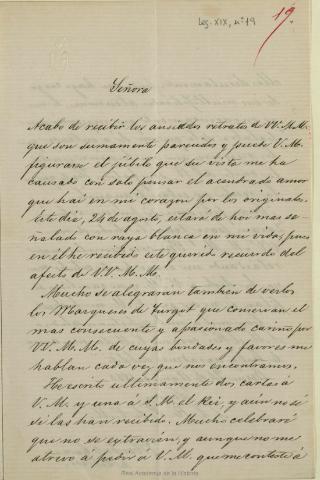 Leg. XIX, nº 19
19.
Señora
Acabo de recibir los ansiados retratos de VV. M.M.
que son sumamente parecidos y puede V.M.
figurarse el júbilo que su vista me ha
causado con solo pensar el acendrado amor
que hai en mi corazon por los originales.
Este dia, 24 de agosto, estará de hoi mas se-
ñalado con raya blanca en mi vida, pues
en él he recibido este querido recuerdo del
afecto de V.V. M.M.
Mucho se alegrarán tambien de verlos
los Marqueses de Turgot que conservan el
mas consecuente y apasionado cariño por
VV. M.M. de cuyas bondades y favores me
hablan cada vez que nos encontramos.
He escrito ultimamente dos cartas á
V.M. y una á S.M. el Rei, y aún no sé
si las han recibido. Mucho celebraré
que no se extravíen, y aunque no me
atrevo á pedir á V.M. que me conteste á
Real Academia de la Historia